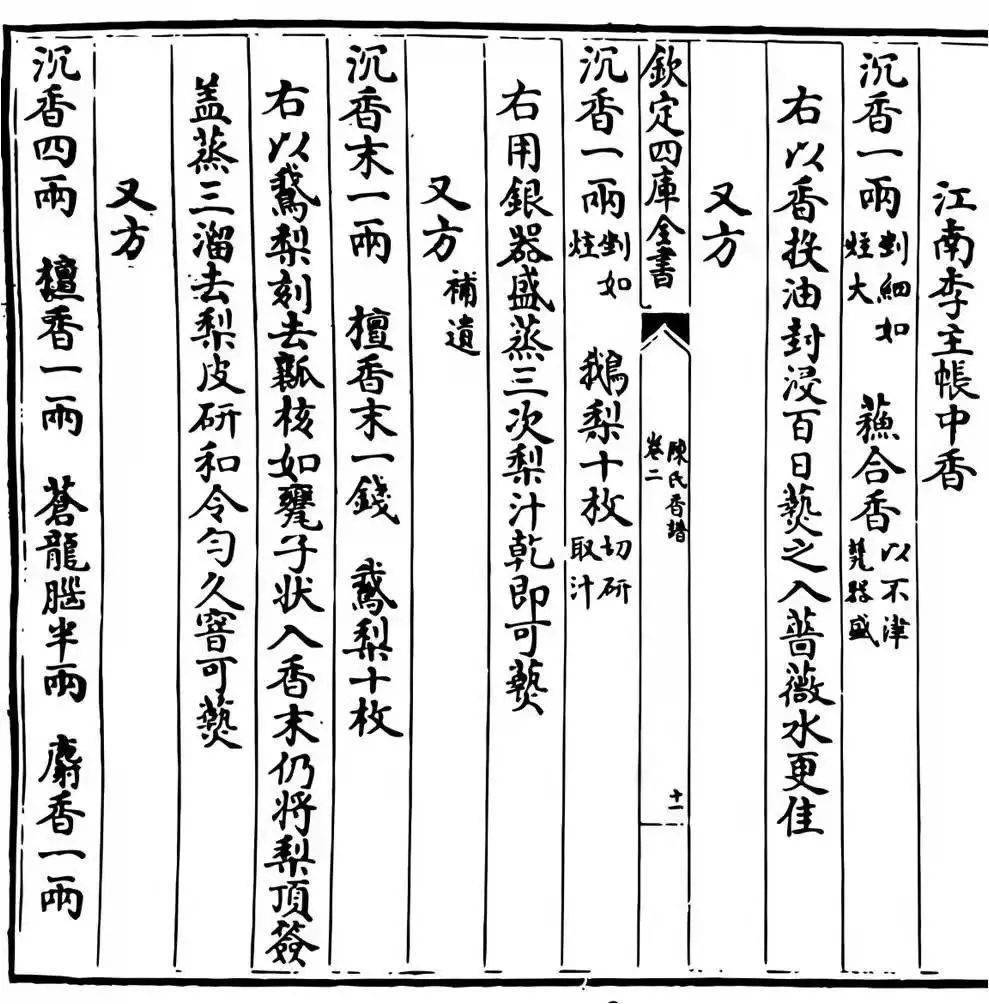 江南李主帳中香
沉香一兩剉細如炷大　蘓合香以不津甆器盛
右以香投油封浸百日爇之入薔薇水更佳
又方
欽定四庫全書　陳氏香譜卷二　十一
沉香一兩剉如炷　鵝梨十枚切研取汁
右用銀器盛蒸三次梨汁乾即可爇
又方補遺
沉香末一兩　檀香末一錢　鵞梨十枚
右以鵞梨刻去瓤核如甕子状入香末仍将梨頂簽
盖蒸三溜去梨皮研和令匀久窨可爇
又方
沉香四兩　檀香一兩　蒼龍腦半兩　麝香一兩